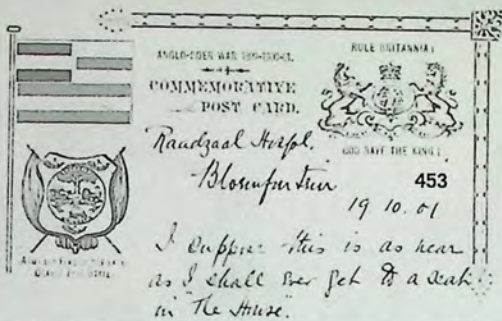 ANGLO-BOER WAR 1899-1900-01.
RULE BRITANNIA!
COMMEMORATIVE
POST CARD.
GOD SAVE THE KING!
Raadzaal Hospl.
Bloemfontein
453
19.10.01
I suppose this is as near
as I shall ever get to a seat
in "The House".